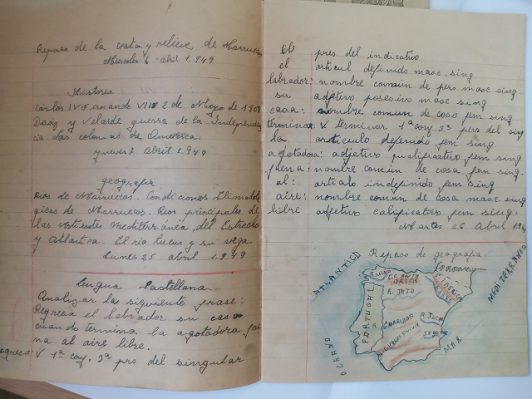 Repaso de la costa y relieve de Marruecos
Miercoles 6 abril 1.949
Historia
Carlos IV Fernando VII 2 de Mayo de 1808
Daoiz y Velarde guerra de la Independen
cia las colonias de America
jueves abril 1.949
geografia
Rios de Marruecos. Condiciones Climatolo
gicas de Marruecos. Rios principales de
las vertientes Mediterránea del Estrecho
y Atlantica. El rio y su vega
Lunes 25 abril 1.949
Lengua Castellana
Analizar la siguiente frase:
Regresa el labrador su casa
cuando termina la agotadora fae
na al aire libre.
Regresa: V. 1ª conj. 3ª pro del singular
pres del indicativo
el articul definido masc. sing
labrador: nombre comun de pers masc sing
su adjetivo posesivo masc sing
casa: nombre comun de cosa fem sing
termina: V. terminar 1ª conj 3ª pers del sing
la articulo definido fem sing
agotadora: adjetivo calificativo fem sing
faena: nombre común de cosa fem sing
al: articulo indefinido fem sing
aire: nombre comun de cosa masc sing
libre adjetivo calificativo fem sing.
Martes 26 Abril 194
Repaso de geografia
ATLANTICO
MEDITERRANEO
PORTUGAL
R. TAJO
OCEANO
MAR